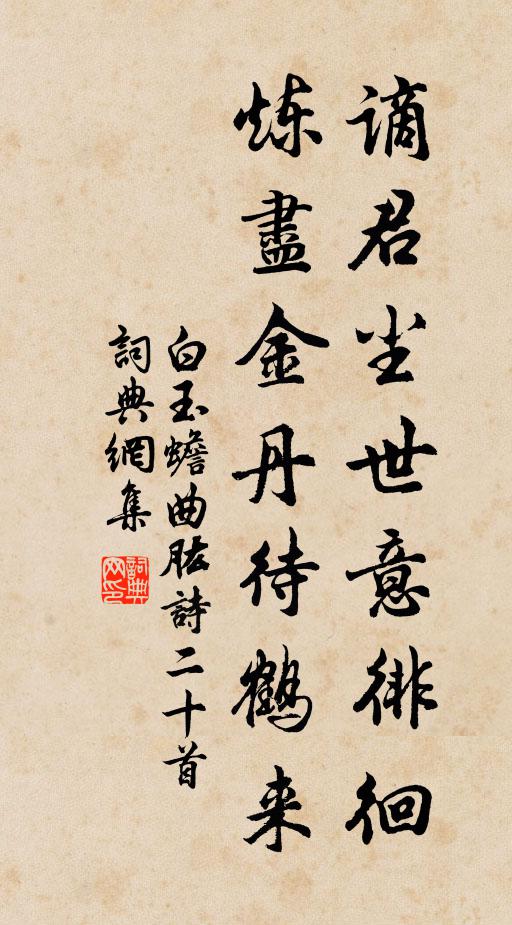 谪君尘世意徘徊
炼盡金丹待鹤来
白玉蟾曲肱詩二十首
詞典網集
詞典网印